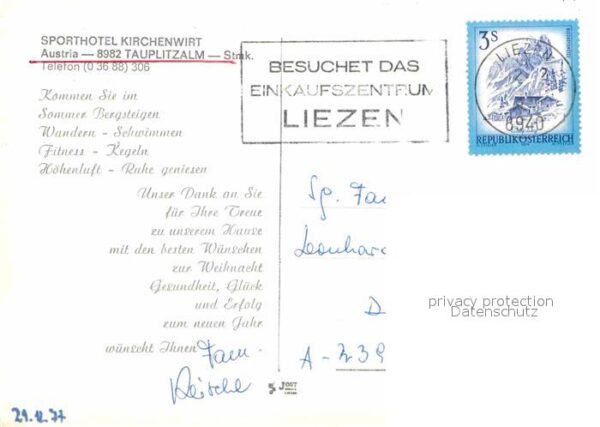 SPORTHOTEL KIRCHENWIRT
Austria — 8982 TAUPLITZALM — Stmk.
Telefon (0 36 88) 306
Kommen Sie im
Sommer Bergsteigen
Wandern - Schwimmen
Fitness - Kegeln
Höhenluft - Ruhe geniesen
Unser Dank an Sie
für Ihre Treue
zu unserem Hause
mit den besten Wünschen
zur Weihnacht
Gesundheit, Glück
und Erfolg
zum neuen Jahr
wünscht Ihnen Fam.
29.12.77
BESUCHET DAS
EINKAUFSZENTRUM
LIEZEN
3S
LIEZEN
8940
REPUBLIK ÖSTERREICH
Leonhar
D
A-239
privacy protection
Datenschutz
JOST